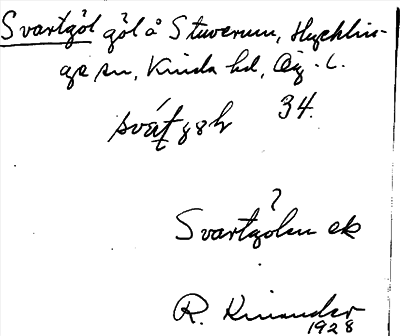 Svartgöl göl å Stuverum, Hycklin-
ge sn, Kinda hd, Ög. l.
34.
?
Svartgölen ek
R. Kinander
1928